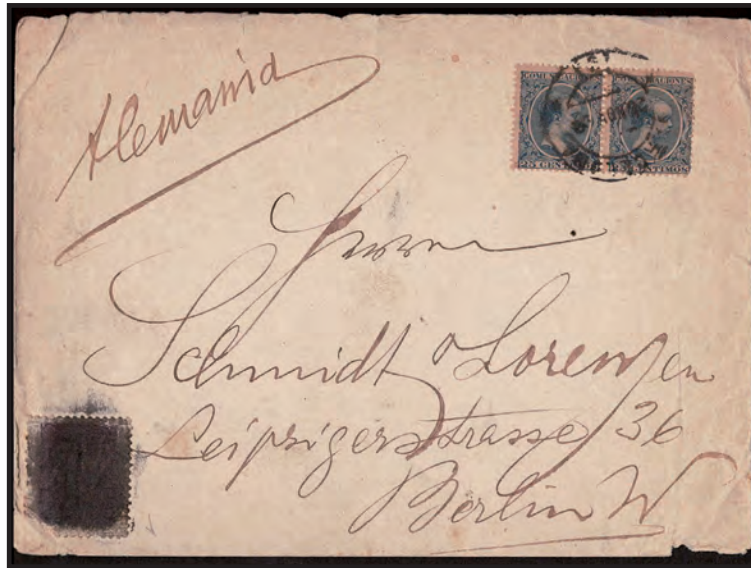 Alemania
COMUNICACIONES COMUNICACIONES
25 CENTIMOS 25 CENTIMOS
Herren
Schmidt & Lorenzen
Leipzigerstrasse 36
Berlin W